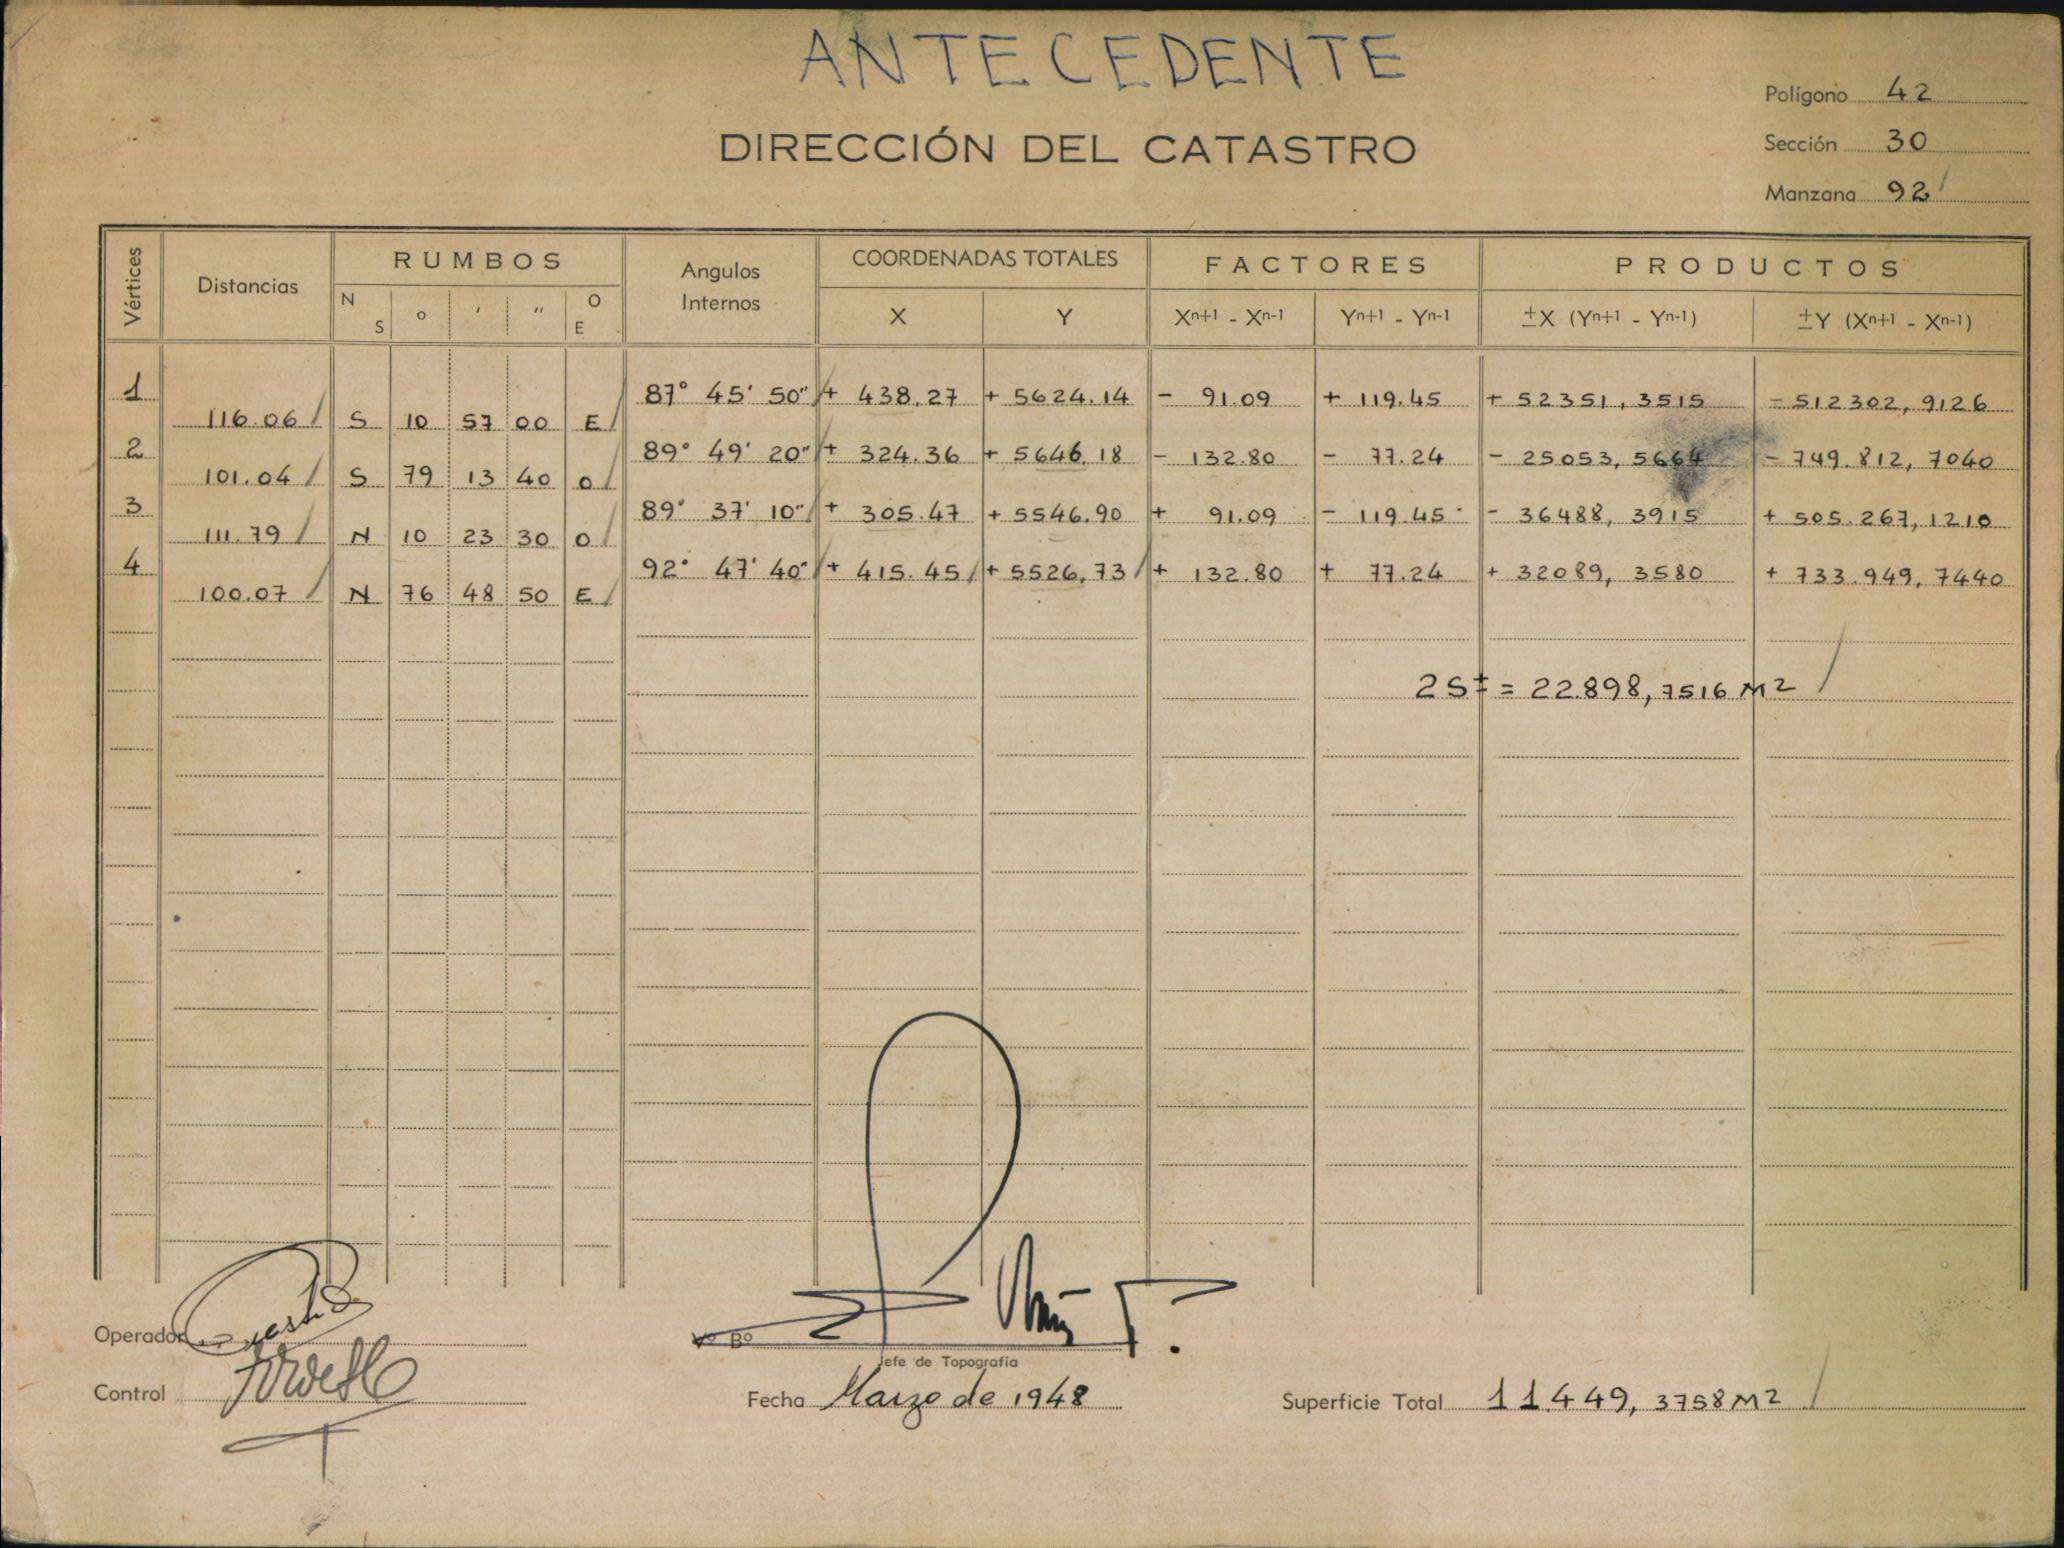 ANTECEDENTE
DIRECCIÓN DEL CATASTRO
Polígono 42
Sección 30
Manzana 92
Vértices Distancias RUMBOS Angulos Internos COORDENADAS TOTALES FACTORES PRODUCTOS
N S o ′ ″ O E X Y Xn+1 - Xn-1 Yn+1 - Yn-1 ±X (Yn+1 - Yn-1) ±Y (Xn+1 - Xn-1)
1 87° 45' 50" + 438.27 + 5624.14 - 91.09 + 119.45 + 52351,3515 - 512302,9126
116.06 S 10 57 00 E
2 89° 49' 20" + 324.36 + 5646.18 - 132.80 - 77.24 - 25053,5664 - 749.812,7040
101.04 S 79 13 40 O
3 89° 37' 10" + 305.47 + 5546.90 + 91.09 - 119.45 - 36488,3915 + 505.267,1210
111.79 N 10 23 30 O
4 92° 47' 40" + 415.45 + 5526,73 + 132.80 + 77.24 + 32089,3580 + 733.949,7440
100.07 N 76 48 50 E
2S± = 22.898,7516 M2
Operador
Vº Bº
Jefe de Topografía
Control
Fecha Marzo de 1948
Superficie Total 11.449,3758 M2